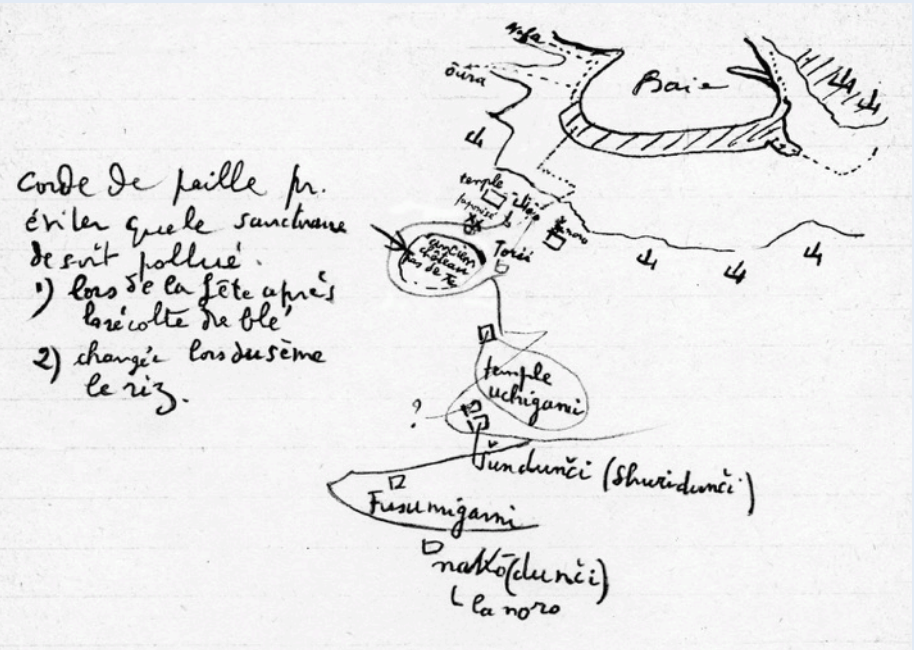 Corde de paille pr.
éviter que le sanctuaire
ne soit pollué.
1) lors de la fête après
la récolte de blé
2) changée lors du sème
le riz.
ōura
Baie
temple
japonisé
noro
Torii
ancien
château
temple
uchigami
?
Šundunči (Shuridunči)
Fusumigami
nakō (dunči)
la noro